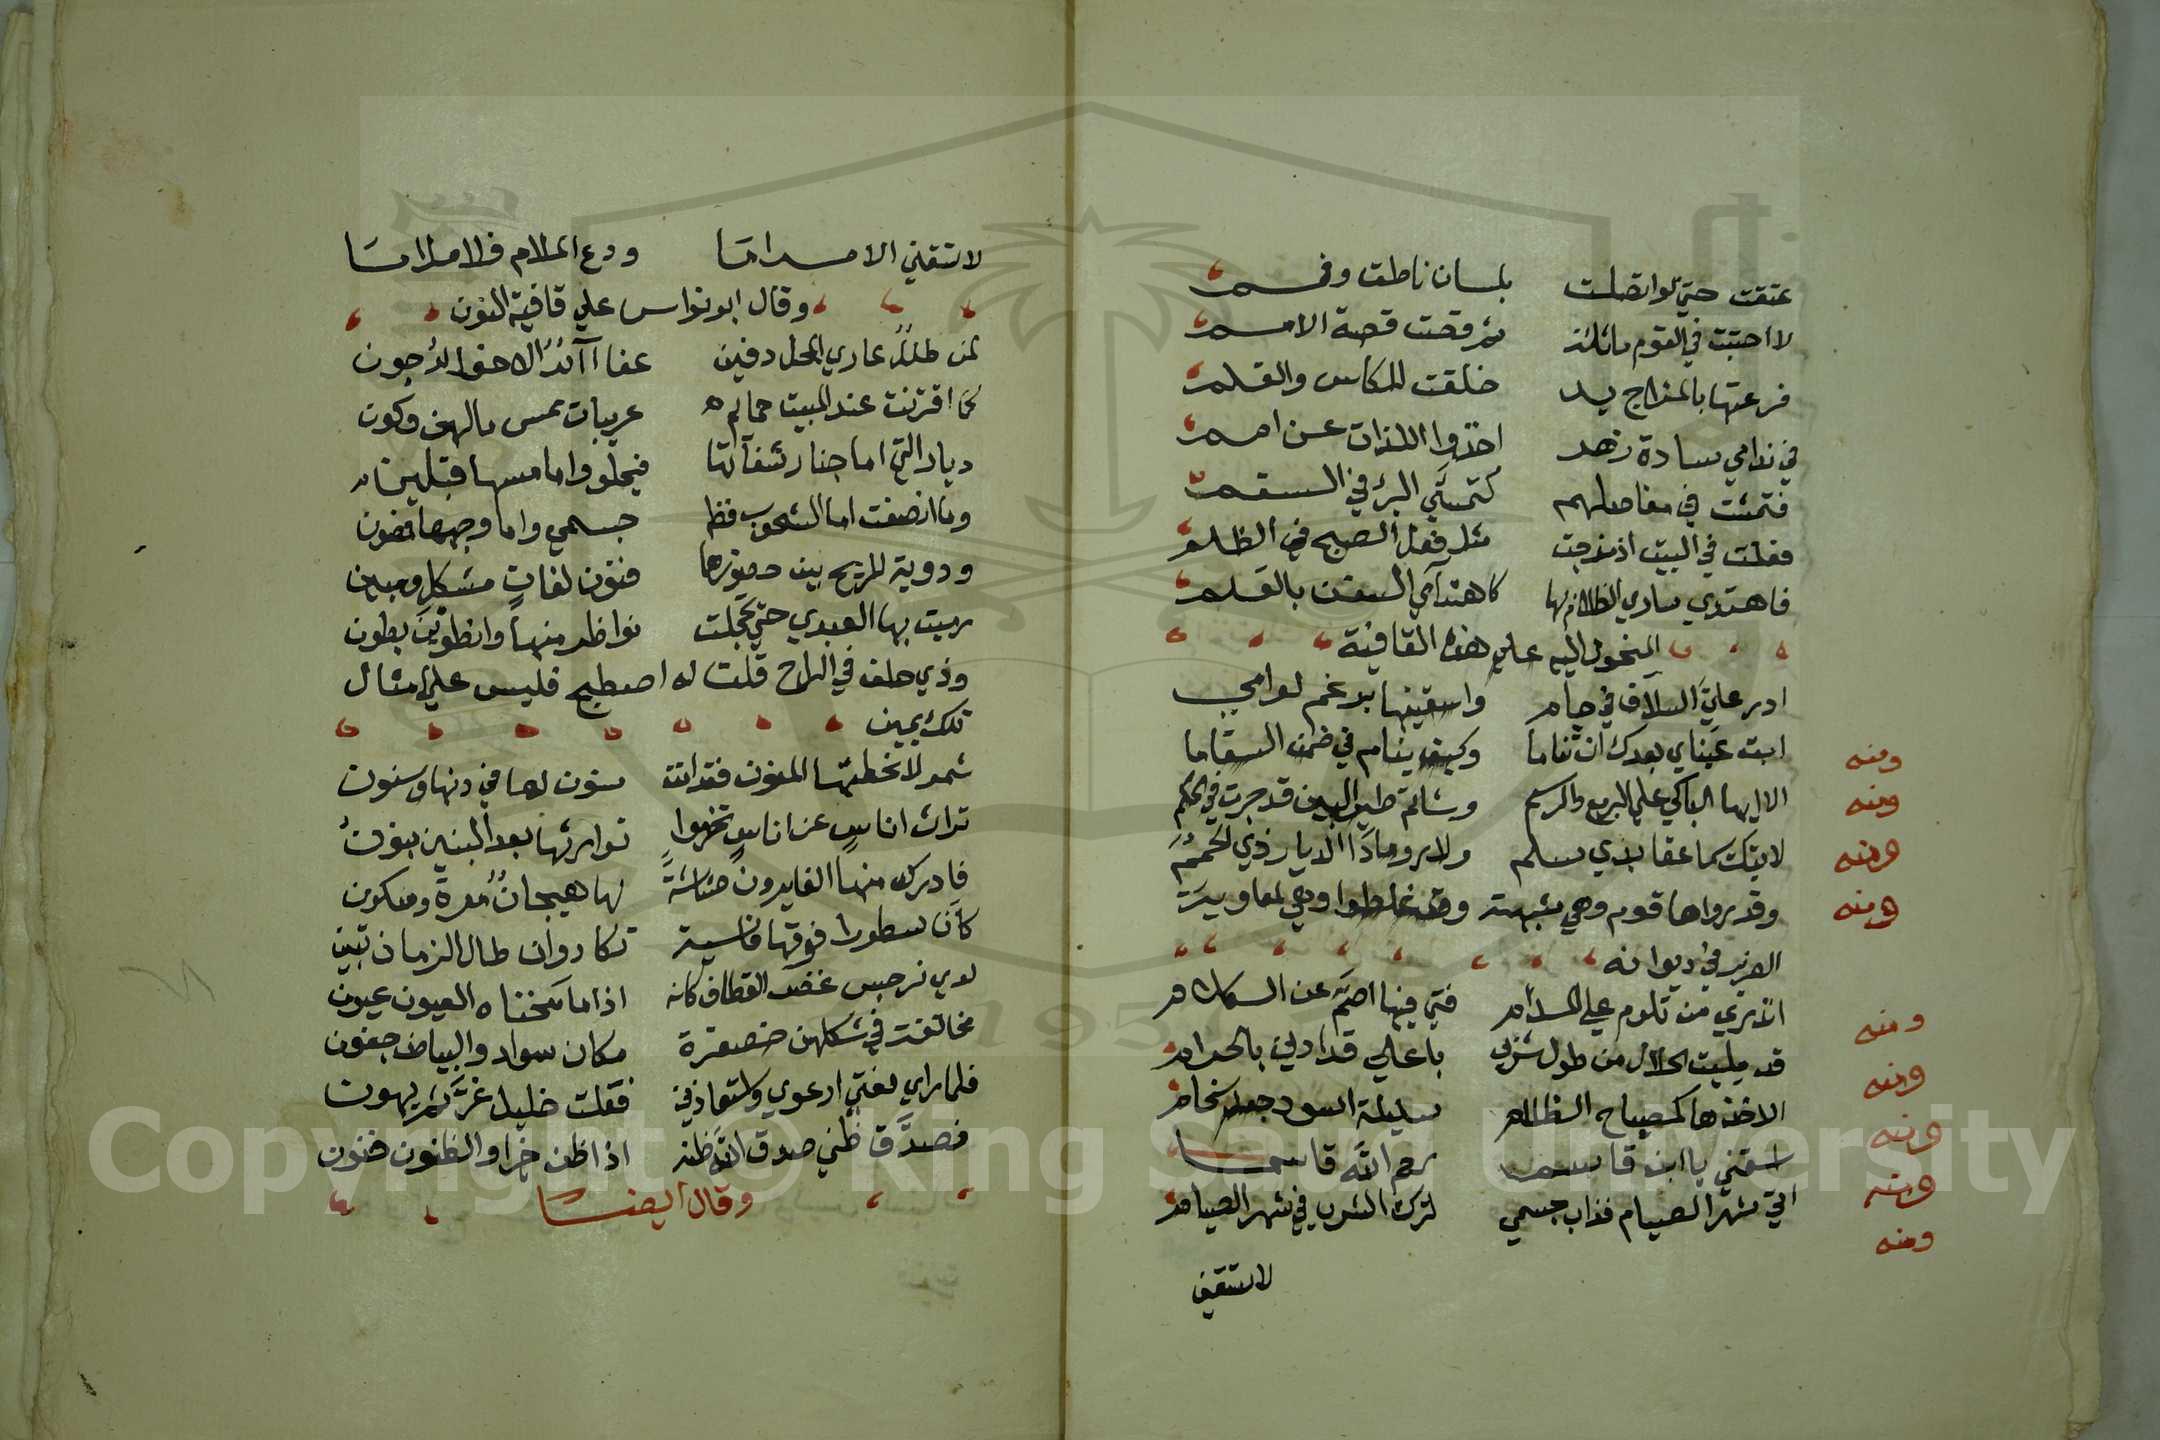 عتقت حتي لو اتصلت بلسان ناطق وفم
لاحتبت في القوم ماثلة ثم قصت قصة الامم
فرعتها بالمزاج يد خلقت للكاس والقلم
في ندامي سادة زهر اخذوا اللذات عن امم
فتمشت في مفاصلهم كتمشي البرء في السقم
فعلت في البيت اذ مزجت مثل فعل الصبح في الظلم
فاهتدي ساري الظلام بها كاهتدآء السفن بالعلم
المنحول اليه علي هذه القافية
ادر علي السلاف في جام واسقينها برغم لوامي
ومنه ابت عيناي بعدك ان تناما وكيف ينام في ضمن السقاما
ومنه الا ايها الباكي علي الربع والرسم
ومنه لا تبك رسما عفا بذي سلم
ومنه وقد رواها قوم وهي مشبهة وقد غلطوا وهي لمعاوية
في ديوانه
ومنه من تلوم علي المدام فتي فيها اصم عن الكلام
ومنه قد مليت الحلال من طول شربي
ومنه الا خذها كمصباح الظلام سليلة اسود جعد سخام
ومنه اسقني يا ابن قاسم رحم الله قاسما
ومنه اتي شهر الصيام فذاب جسمي لترك الشرب في شهر الصيام
لا تسقني
لا تسقني الا مداما ودع الملام فلا ملاما
وقال ابو نواس علي قافية النون
لمن طلل عاري المحل دفين عفا
كما اقترنت عند المبيت حمايم غريبات ممسي مالهن وكون
ديار التي اما جنا رشفاتها فيحلو واما مسها فيلين
وما انصفت اما الشحوب فظا جسمي واما وجهها
ودوية للريح بين فنون لغات مشكل ومبين
رميت بها العيدي حتي تحجلت نواظر منها وانطوين بطون
وذي حلف في الراح قلت له اصطبح فليس علي امثال
تلك يمين
شمولا تخطتها المنون فقد اتت سنون لها في دنها وسنون
تراث اناس عن اناس تخرموا توارثها بعد البنين بنون
فادرك منها الغابرون حشاشة لها هيجان مرة وسكون
كان سطورا فوقها فارسية تكاد وان طال الزمان تبين
لدي نرجس غض القطاف كانه اذا ما منحناه العيون عيون
مخالفة في شكلهن فصفرة مكان سواد والبياض جفون
فلما راي نعتي ارعوي واستعاذني فقلت خليل عز ثم يهون
فصدق ظني صدق الله ظنه اذا ظن خيرا والظنون فنون
وقال ايضا